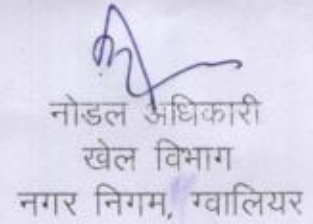 नोडल अधिकारी
खेल विभाग
नगर निगम, ग्वालियर